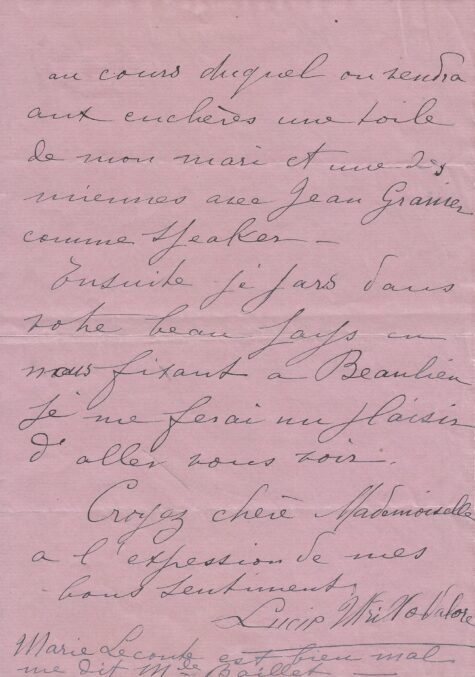 au cours duquel on vendra
aux enchères une toile
de mon mari et une des
miennes avec Jean Granier
comme speaker —
Ensuite je pars dans
votre beau pays en
nous fixant a Beaulieu
je me ferai un plaisir
d'aller vous voir.
Croyez chère Mademoiselle
a l'expession de mes
bons sentiments,
Lucie Utrillo Valore
Marie Leconte est bien mal
me dit Mlle